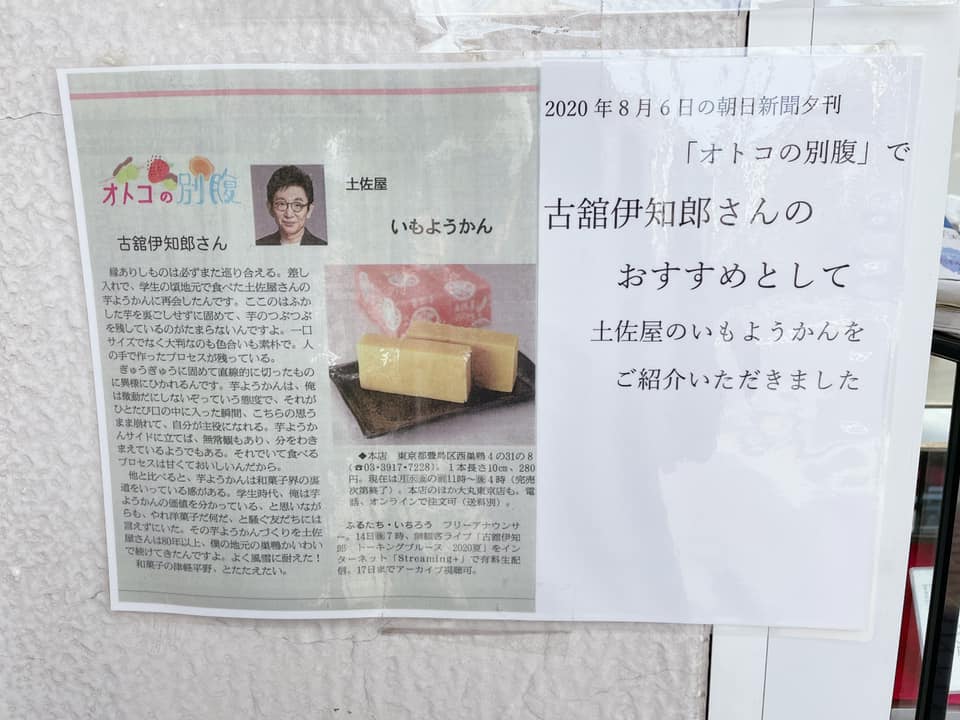 オトコの別腹
古舘伊知郎さん
土佐屋
いもようかん
縁ありしものは必ずまた巡り合える。差し
入れで、学生の頃地元で食べた土佐屋さんの
芋ようかんに再会したんです。ここのはふか
した芋を裏ごしせずに固めて、芋のつぶつぶ
を残しているのがたまらないんですよ。一口
サイズでなく大判なのも色合いも素朴で。人
の手で作ったプロセスが残っている。
ぎゅうぎゅうに固めて直線的に切ったもの
に異様にひかれるんです。芋ようかんは、俺
は微動だにしないぞっていう態度で、それが
ひとたび口の中に入った瞬間、こちらの思う
まま崩れて、自分が主役になれる。芋ようか
んサイドに立てば、無常観もあり、分をわき
まえているようでもある。それでいて食べる
プロセスは甘くておいしいんだから。
他と比べると、芋ようかんは和菓子界の裏
道をいっている感がある。学生時代、俺は芋
ようかんの価値を分かっている、と思いなが
らも、やれ洋菓子だ何だ、と騒ぐ友だちには
言えずにいた。その芋ようかんづくりを土佐
屋さんは80年以上、僕の地元の巣鴨かいわい
で続けてきたんですよ。よく風雪に耐えた！
和菓子の津軽平野、とたたえたい。
◆本店 東京都豊島区西巣鴨4の31の8
(☎03・3917・7228)。1本長さ10㎝、280
円。現在は月水金の前11時～後4時(完売
次第終了)。本店のほか大丸東京店も。電
話、オンラインで注文可(送料別)。
ふるたち・いちろう フリーアナウンサ
ー。14日後7時、無観客ライブ「古舘伊知
郎 トーキングブルース 2020夏」をイン
ターネット「Streaming+」で有料生配
信。17日までアーカイブ視聴可。
2020年8月6日の朝日新聞夕刊
「オトコの別腹」で
古舘伊知郎さんの
おすすめとして
土佐屋のいもようかんを
ご紹介いただきました